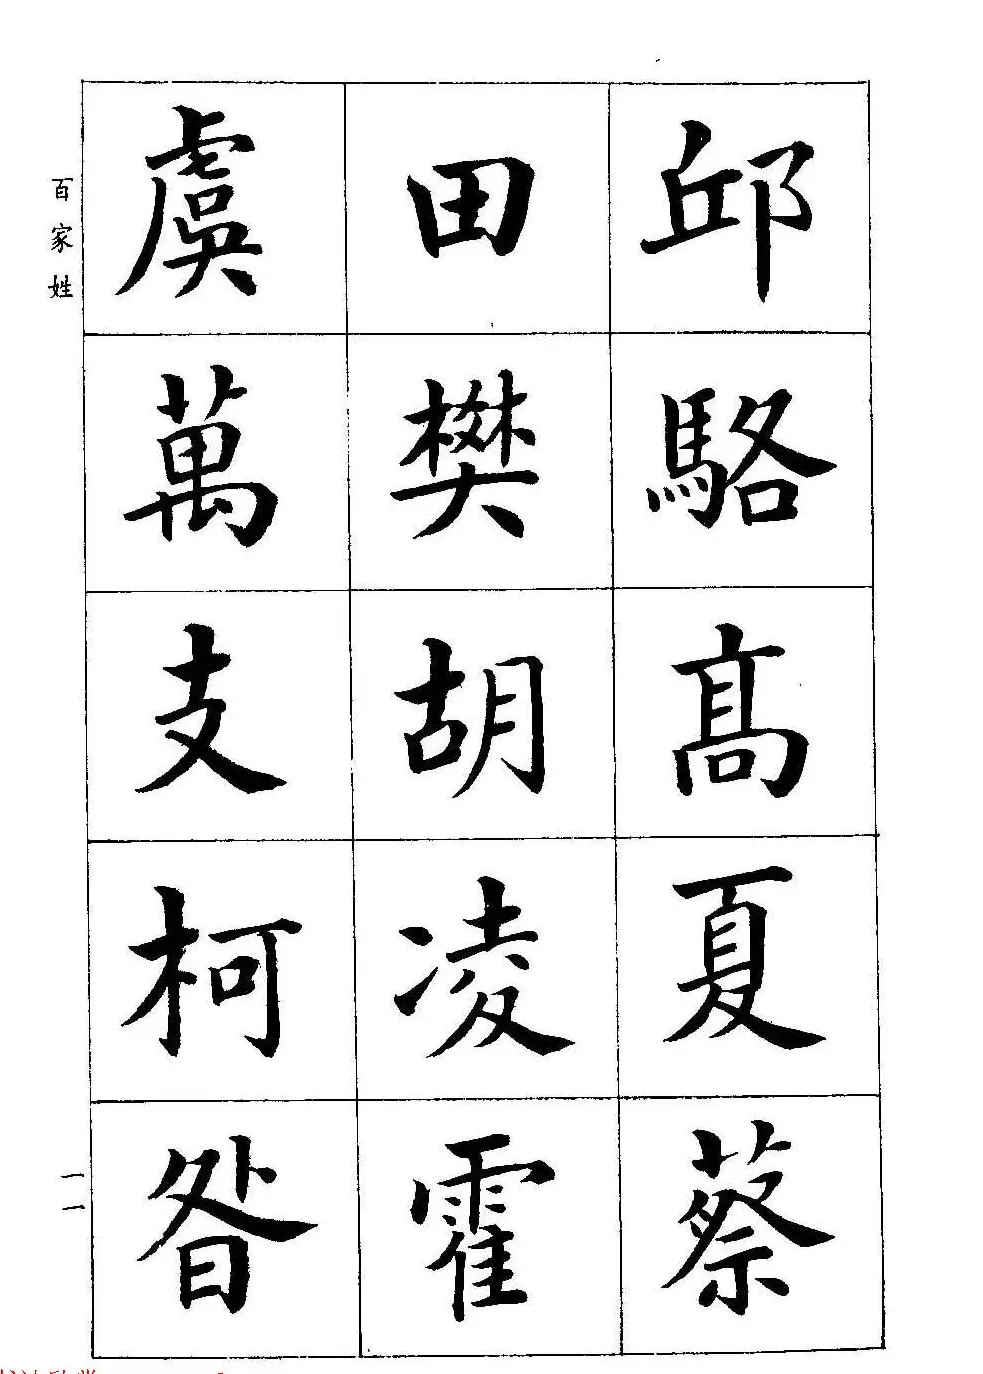 邱駱髙夏蔡
田樊胡凌霍
虞萬支柯昝
百家姓
一一